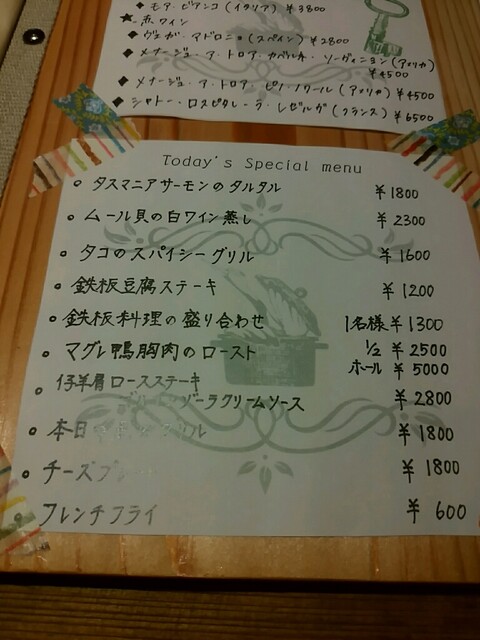 ◆ モア・ビアンコ (イタリア) ¥3800
★ 赤ワイン
◆ ヴェガ・アドリニョ (スペイン) ¥2800
◆ メナージュ・ア・トロア・カベルネ・ソーヴィニヨン (アメリカ)
¥4500
◆ メナージュ・ア・トロア・ピノ・ノワール (アメリカ) ¥4500
◆ シャトー・ロスピタレ・ラ・レゼルヴ (フランス) ¥6500
Today's Special menu
タスマニアサーモンのタルタル ¥1800
ムール貝の白ワイン蒸し ¥2300
タコのスパイシーグリル ¥1600
鉄板豆腐ステーキ ¥1200
鉄板料理の盛り合わせ 1名様 ¥1300
マグレ鴨胸肉のロースト 1/2 ¥2500
ホール ¥5000
仔羊肩ロースステーキ
ゾーラクリームソース ¥2800
本日 グリル ¥1800
チーズ ¥1800
フレンチフライ ¥600